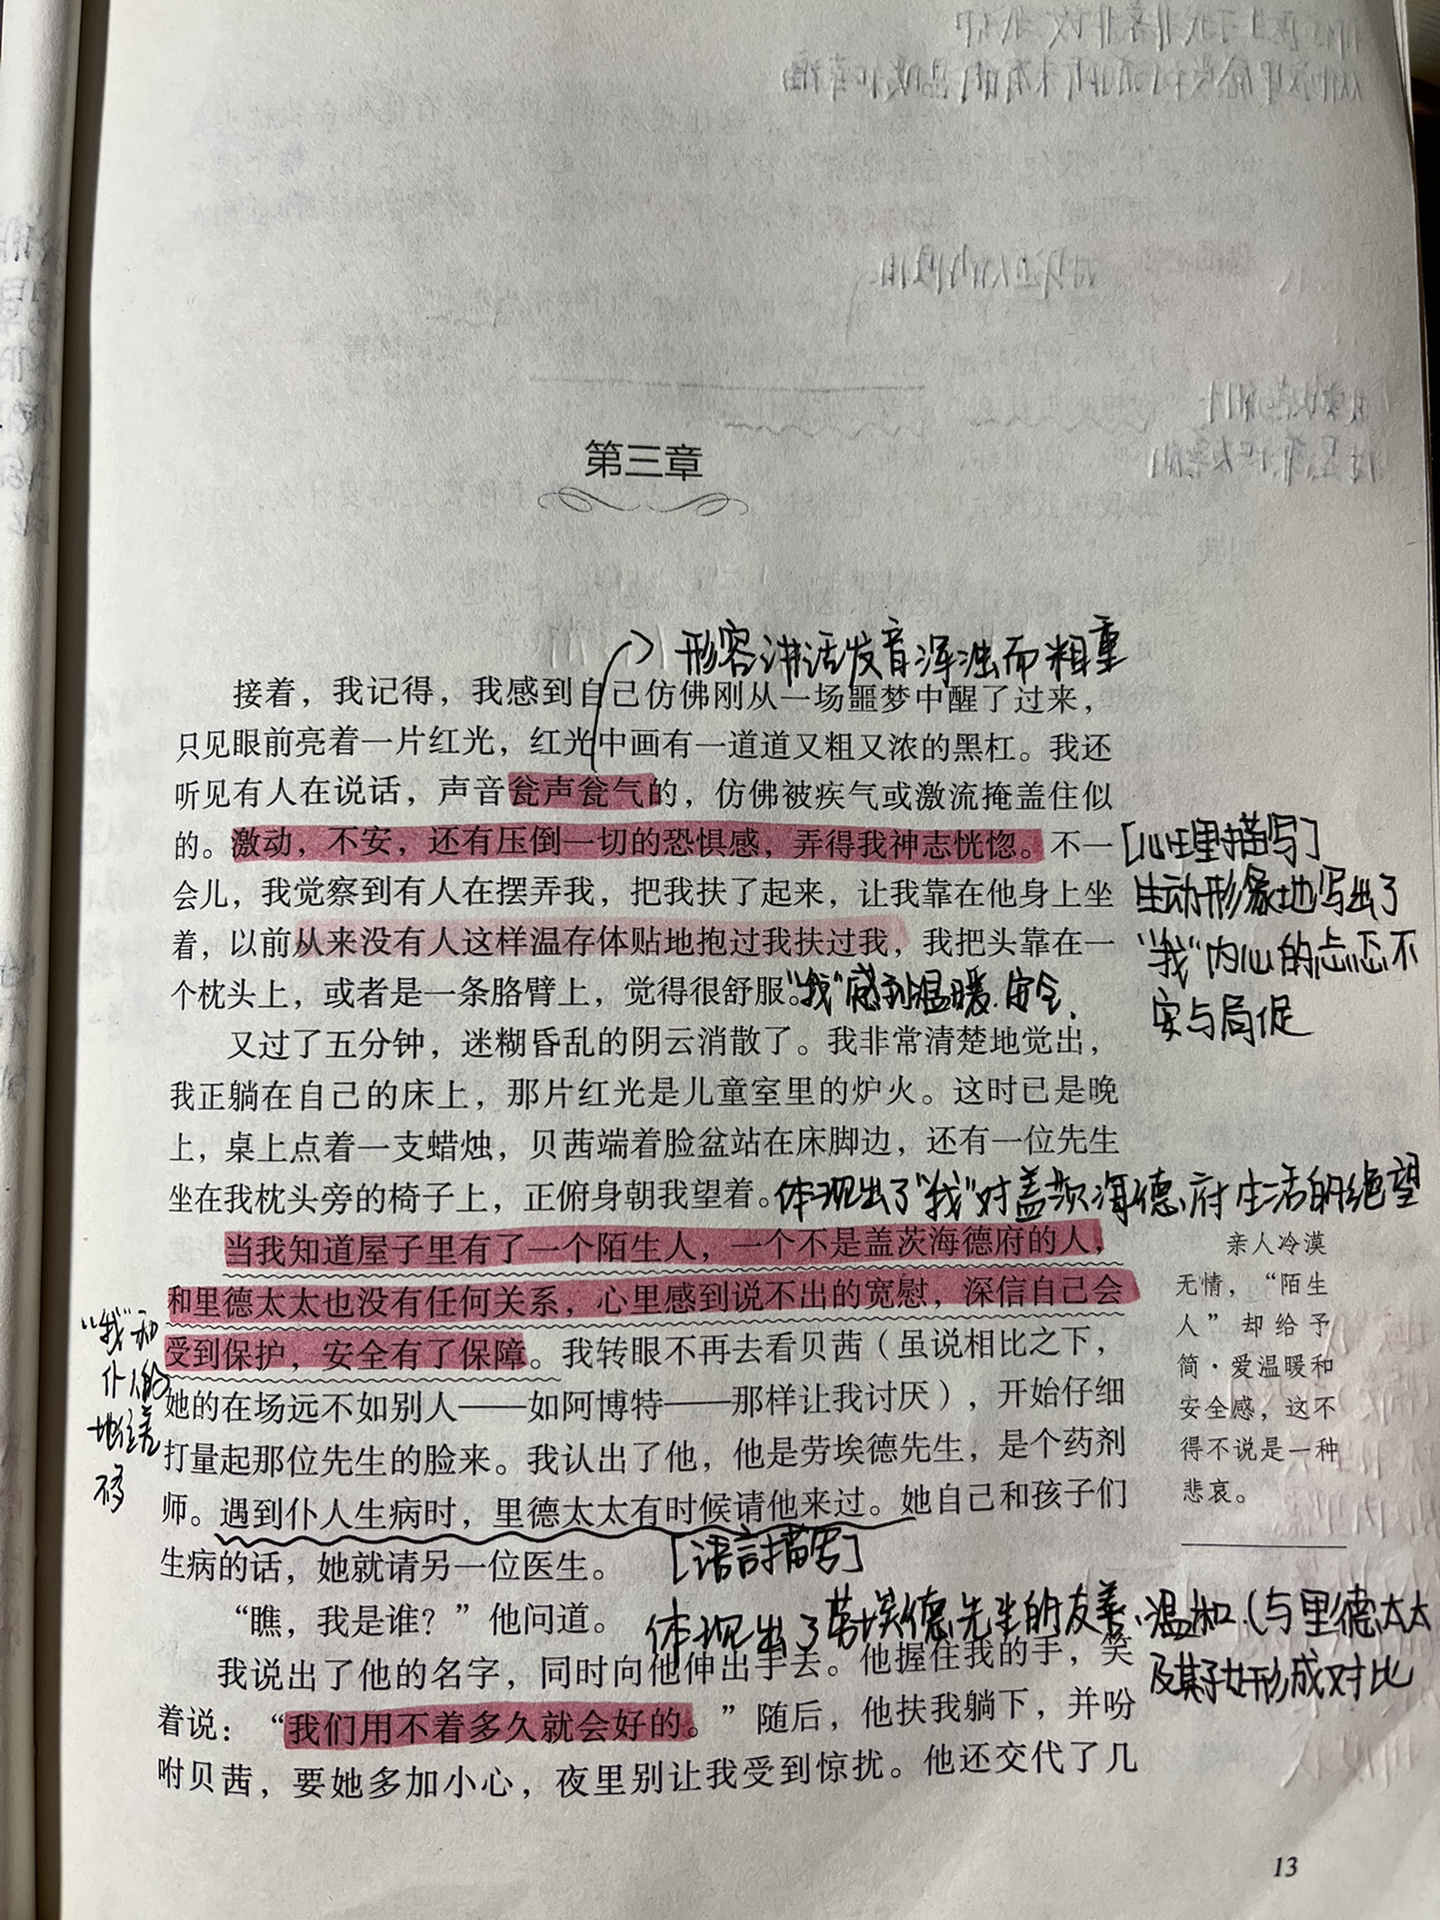 第三章
形容讲话发音浑浊而粗重
接着，我记得，我感到自己仿佛刚从一场噩梦中醒了过来，
只见眼前亮着一片红光，红光中画有一道道又粗又浓的黑杠。我还
听见有人在说话，声音瓮声瓮气的，仿佛被疾气或激流掩盖住似
的。激动，不安，还有压倒一切的恐惧感，弄得我神志恍惚。不一
会儿，我觉察到有人在摆弄我，把我扶了起来，让我靠在他身上坐
着，以前从来没有人这样温存体贴地抱过我扶过我，我把头靠在一
个枕头上，或者是一条胳臂上，觉得很舒服。
“我”感到温暖、安全.
[心理描写]
生动形象地写出了
“我”内心的忐忑不
安与局促
又过了五分钟，迷糊昏乱的阴云消散了。我非常清楚地觉出，
我正躺在自己的床上，那片红光是儿童室里的炉火。这时已是晚
上，桌上点着一支蜡烛，贝茜端着脸盆站在床脚边，还有一位先生
坐在我枕头旁的椅子上，正俯身朝我望着。
体现出了“我”对盖茨海德府生活的绝望
当我知道屋子里有了一个陌生人，一个不是盖茨海德府的人，
和里德太太也没有任何关系，心里感到说不出的宽慰，深信自己会
受到保护，安全有了保障。我转眼不再去看贝茜（虽说相比之下，
她的在场远不如别人——如阿博特——那样让我讨厌），开始仔细
打量起那位先生的脸来。我认出了他，他是劳埃德先生，是个药剂
师。遇到仆人生病时，里德太太有时候请他来过。她自己和孩子们
生病的话，她就请另一位医生。
亲人冷漠
无情，“陌生
人”却给予
简·爱温暖和
安全感，这不
得不说是一种
悲哀。
“我”和
仆人的
地位差
不多
[语言描写]
体现出了劳埃德先生的友善、温和.(与里德太太
及其子女形成对比
“瞧，我是谁？”他问道。
我说出了他的名字，同时向他伸出手去。他握住我的手，笑
着说：“我们用不着多久就会好的。”随后，他扶我躺下，并吩
咐贝茜，要她多加小心，夜里别让我受到惊扰。他还交代了几
13